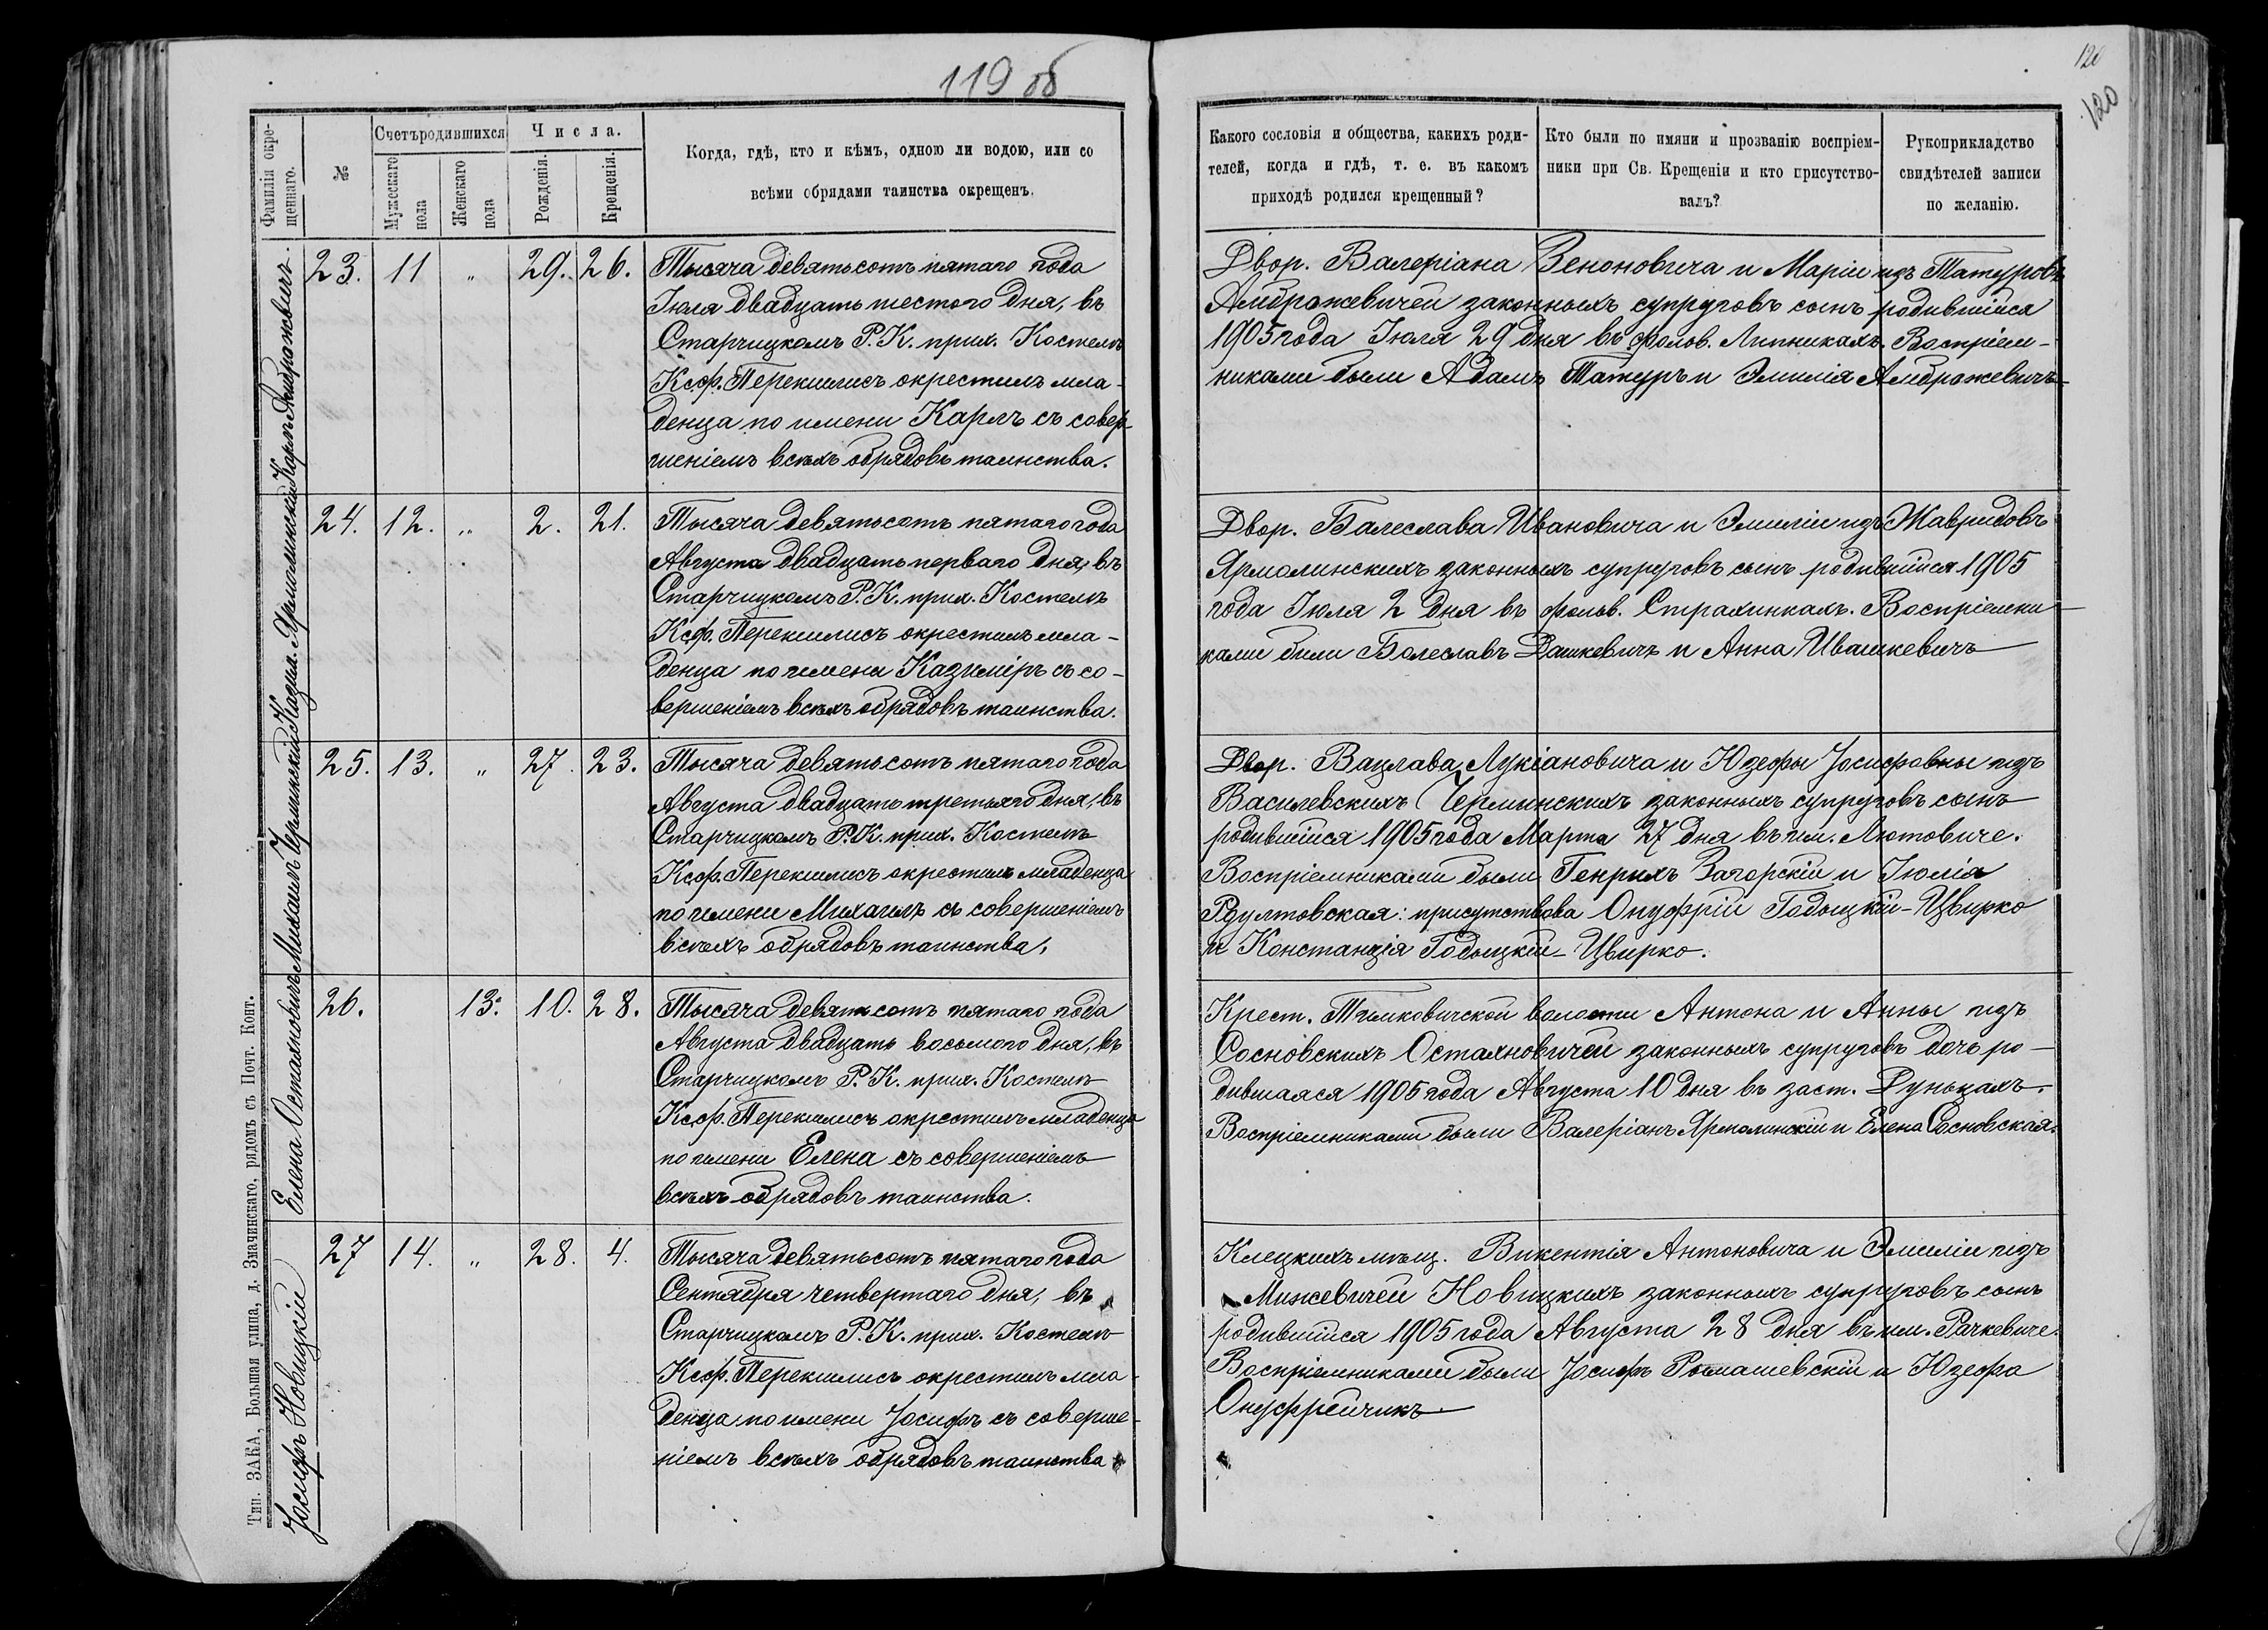 119 об
120
120
Фамилія окре-
щеннаго.
№
Счетъ родившихся
Мужескаго
пола
Женскаго
пола
Числа.
Рожденія.
Крещенія.
Когда, гдѣ, кто и кѣмъ, одною ли водою, или со
всѣми обрядами таинства окрещенъ.
Какого сословія и общества, какихъ роди-
телей, когда и гдѣ, т. е. въ какомъ
приходѣ родился крещенный?
Кто были по имяни и прозванію воспріем-
ники при Св. Крещеніи и кто присутство-
валъ?
Рукоприкладство
свидѣтелей записи
по желанію.
Карлъ Амбражевичъ.
23. 11 „ 29. 26.
Тысяча девятьсотъ пятаго года
Іюля двадцать шестого дня, въ
Старчицкомъ Р. К. прих. Костелѣ
Ксф. Перекшлисъ окрестилъ мла-
денца по имени Карлъ съ совер-
шеніемъ всѣхъ обрядовъ таинства.
Двор. Валеріана Зеноновича и Маріи изъ Татуровъ
Амбражевичей законныхъ супруговъ сынъ родившійся
1905 года Іюля 29 дня въ фолов. Липникахъ. Воспріем-
никами были Адамъ Татуръ и Эмилія Амбражевичъ
Казим. Ярмолинскій
24. 12. „ 2. 21.
Тысяча девятьсотъ пятаго года
Августа двадцать перваго дня, въ
Старчицкомъ Р. К. прих. Костелѣ
Ксф. Перекшлисъ окрестилъ мла-
денца по имени Казиміръ съ со-
вершеніемъ всѣхъ обрядовъ таинства.
Двор. Балеслава Ивановича и Эмиліи изъ Жавридовъ
Ярмолинскихъ законныхъ супруговъ сынъ родившійся 1905
года Іюля 2 дня въ фольв. Страхинкахъ. Воспріемни-
ками были Болеславъ Дашкевичъ и Анна Ивашкевичъ
Михаилъ Черминскій
25. 13. „ 27. 23.
Тысяча девятьсотъ пятаго года
Августа двадцать третьяго дня, въ
Старчицкомъ Р. К. прих. Костелѣ
Ксф. Перекшлисъ окрестилъ младенца
по имени Михаилъ съ совершеніемъ
всѣхъ обрядовъ таинства.
Двор. Вацлава Лукіановича и Юзефы Іосифовны изъ
Василевскихъ Черминскихъ законныхъ супруговъ сынъ
родившійся 1905 года Марта 27 дня въ им. Лютовиче.
Воспріемниками были Генрихъ Загорскій и Іюлія
Рдултовская: присутствова Онуфрій Годыцкій-Цвирко
и Констанція Годыцкій-Цвирко.
Елена Остаяновичъ
26. 13. 10. 28.
Тысяча девятьсотъ пятаго года
Августа двадцать восьмого дня, въ
Старчицкомъ Р. К. прих. Костелѣ
Ксф. Перекшлисъ окрестилъ младенца
по имени Елена съ совершеніемъ
всѣхъ обрядовъ таинства.
Крест. Тимковичской волости Антона и Анны изъ
Сосновскихъ Остаяновичей законныхъ супруговъ дочь ро-
дившаяся 1905 года Августа 10 дня въ заст. Дунцахъ.
Воспріемниками были Валеріанъ Ярмолинскій и Елена Сосновская.
Іосифъ Новицкій
27 14. „ 28. 4.
Тысяча девятьсотъ пятаго года
Сентября четвертаго дня, въ
Старчицкомъ Р. К. прих. Костелѣ
Ксф. Перекшлисъ окрестилъ мла-
денца по имени Іосифъ съ соверше-
ніемъ всѣхъ обрядовъ таинства
Клецкихъ мѣщ. Викентія Антоновича и Эмиліи изъ
Мижевичей Новицкихъ законныхъ супруговъ сынъ
родившійся 1905 года Августа 28 дня въ им. Рачкевиче.
Воспріемниками были Іосифъ Ромашевскій и Юзефа
Онуфрейчикъ
Тип. ЗАКА, Большая улица, д. Змачинскаго, рядомъ съ Почт. Конт.